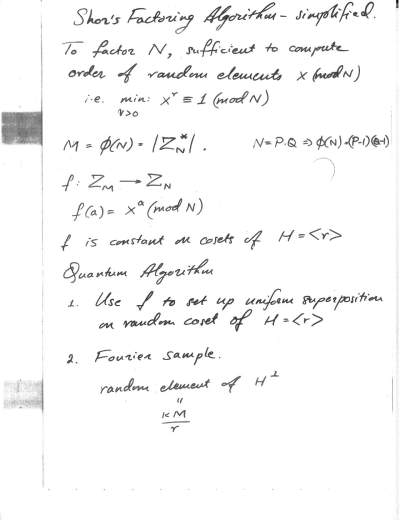 Shor's Factoring Algorithm - simplified.
To factor N, sufficient to compute
order of random elements x (mod N)
i.e. min: x^r ≡ 1 (mod N)
r>0
M = φ(N) = |Z_N^*|. N = P.Q ⇒ φ(N) = (P-1)(Q-1)
f: Z_M → Z_N
f(a) = x^a (mod N)
f is constant on cosets of H = <r>
Quantum Algorithm
1. Use f to set up uniform superposition
on random coset of H = <r>
2. Fourier sample.
random element of H^⊥
"
kM
r